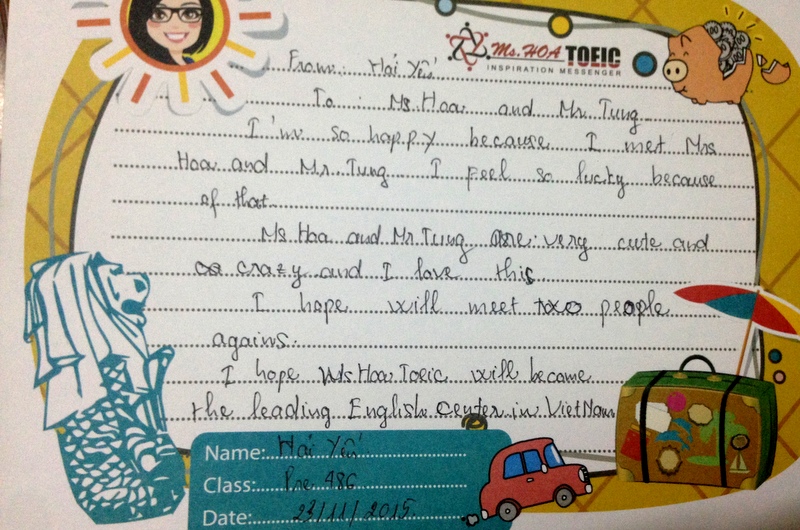 Ms. HOA TOEIC
INSPIRATION MESSENGER
From: Hải Yến
To: Ms. Hoa and Mr. Tung
I'm so happy because I met Mrs
Hoa and Mr. Tung I feel so lucky because
of that.
Ms. Hoa and Mr Tung are very cute and
so crazy and I love this
I hope will meet two people
agains.
I hope Ms Hoa Toeic will become
the leading English Center in VietNam
Name: Hải Yến
Class: Pre 486
Date: 23/11/2015